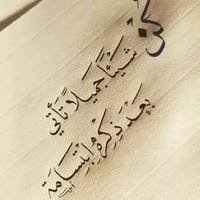 كن
شيئاً جميلاً تأتي
بعد ذكره ابتسامة